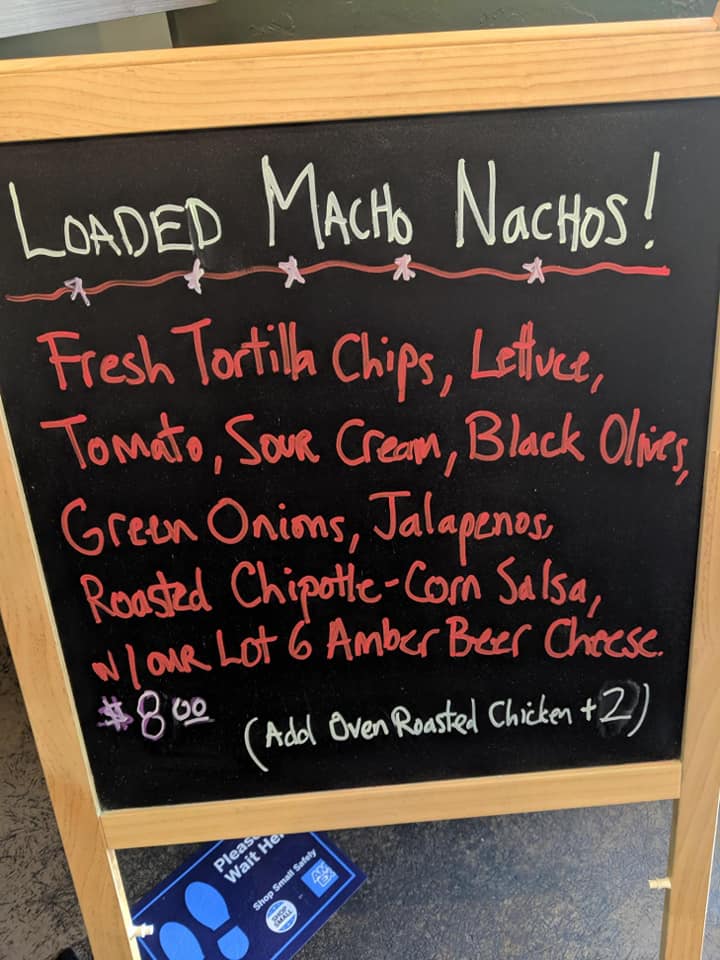 LOADED MACHO NACHOS!
Fresh Tortilla Chips, Lettuce,
Tomato, Sour Cream, Black Olives,
Green Onions, Jalapenos,
Roasted Chipotle-Corn Salsa,
w/our Lot 6 Amber Beer Cheese.
$8.00
(Add Oven Roasted Chicken + 2)
Please
Wait Here
Shop Small Safely
SHOP
SMALL
AM
EX